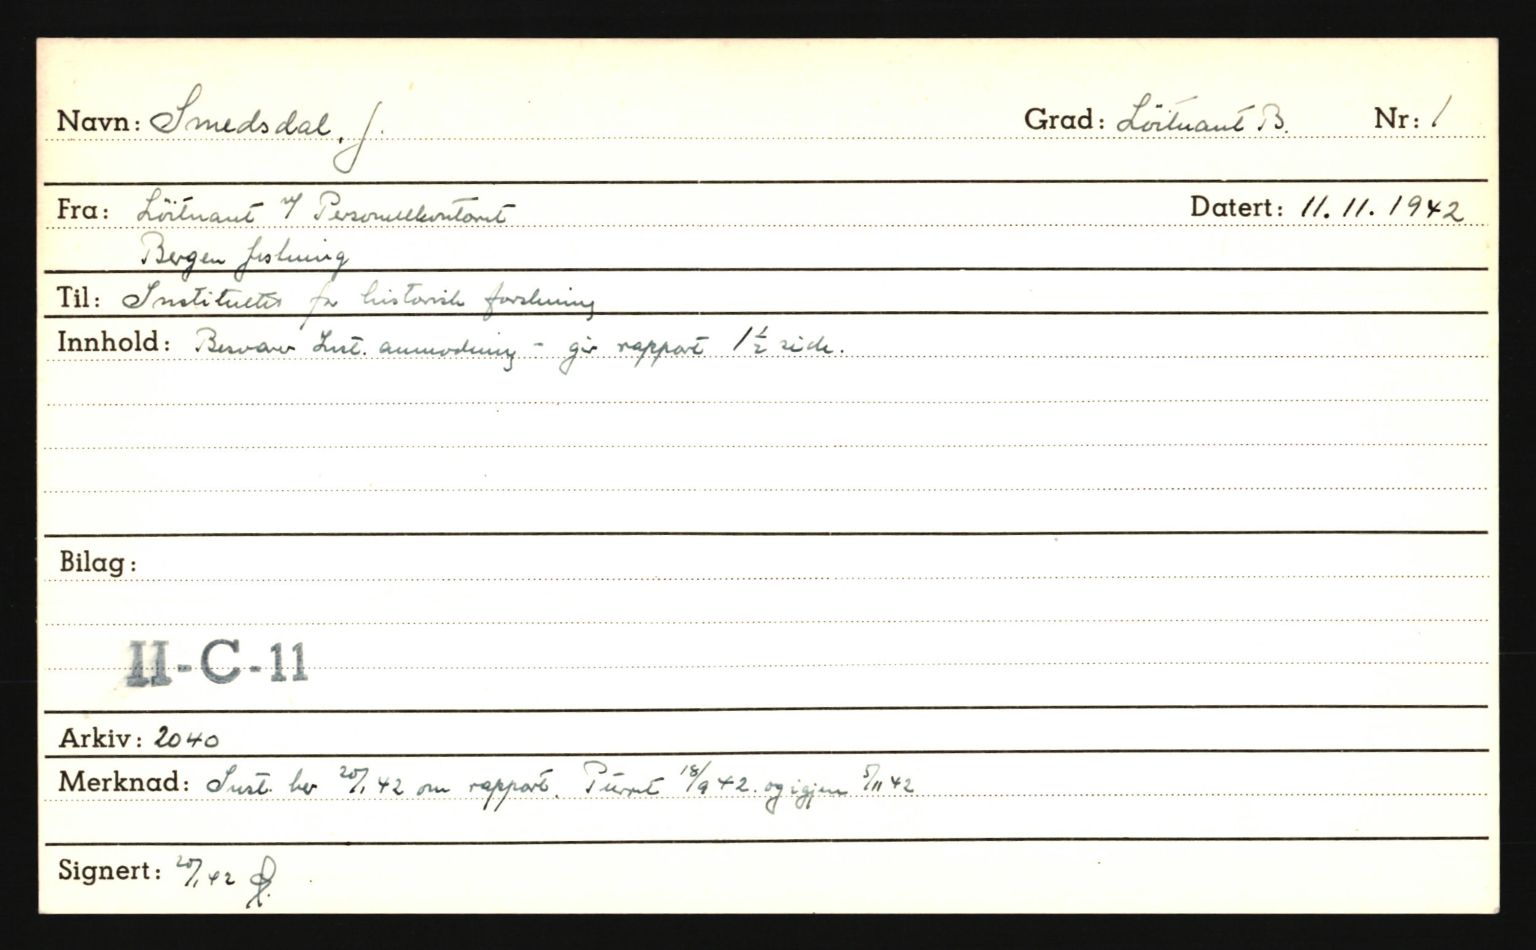 Navn: Smedsdal, J. Grad: Löitnant B. Nr: 1
Fra: Löitnant v/ Personellkontoret Datert: 11.11.1942
Bergen festning
Til: Instituttet for historisk forskning
Innhold: Besvarer Inst. anmodning - gir rapport 1 1/2 side.
Bilag:
II-C-11
Arkiv: 2040
Merknad: Inst. ber 20/1 42 om rapport. Purret 18/9 42. og igjen 5/11 42
Signert: 20/1 42